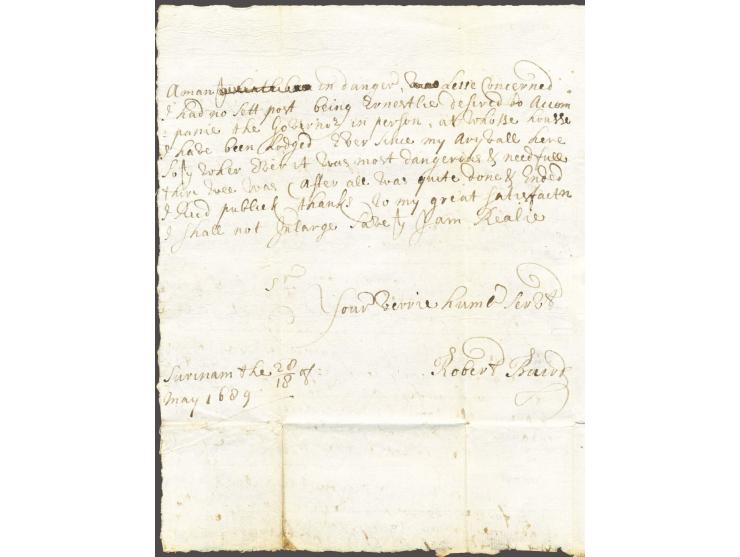 A man in danger, lesse Concerned
I had no sett post being Ernestlie desired to Accom
panie the Governor in person, at whosse housse
I have been Lodged Ever since my Aryvall here
So yt wher Ever it was most dangerous & needfull
there wee was After all was quite done & Ended
I Recd publick thanks to my great satisfactn
I shall not Inlarge save yt I am Realie
Sr
Your verrie humle Servt
Robert Baird
Surinam the 28/18 of:
May 1689